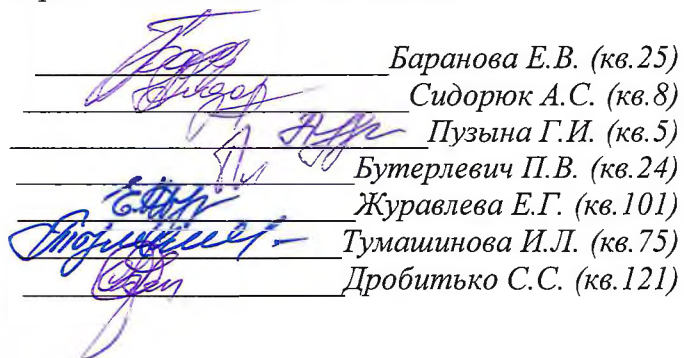 Баранова Е.В. (кв.25)
Сидорюк А.С. (кв.8)
Пузына Г.И. (кв.5)
Бутерлевич П.В. (кв.24)
Журавлева Е.Г. (кв.101)
Тумашинова И.Л. (кв.75)
Дробитько С.С. (кв.121)